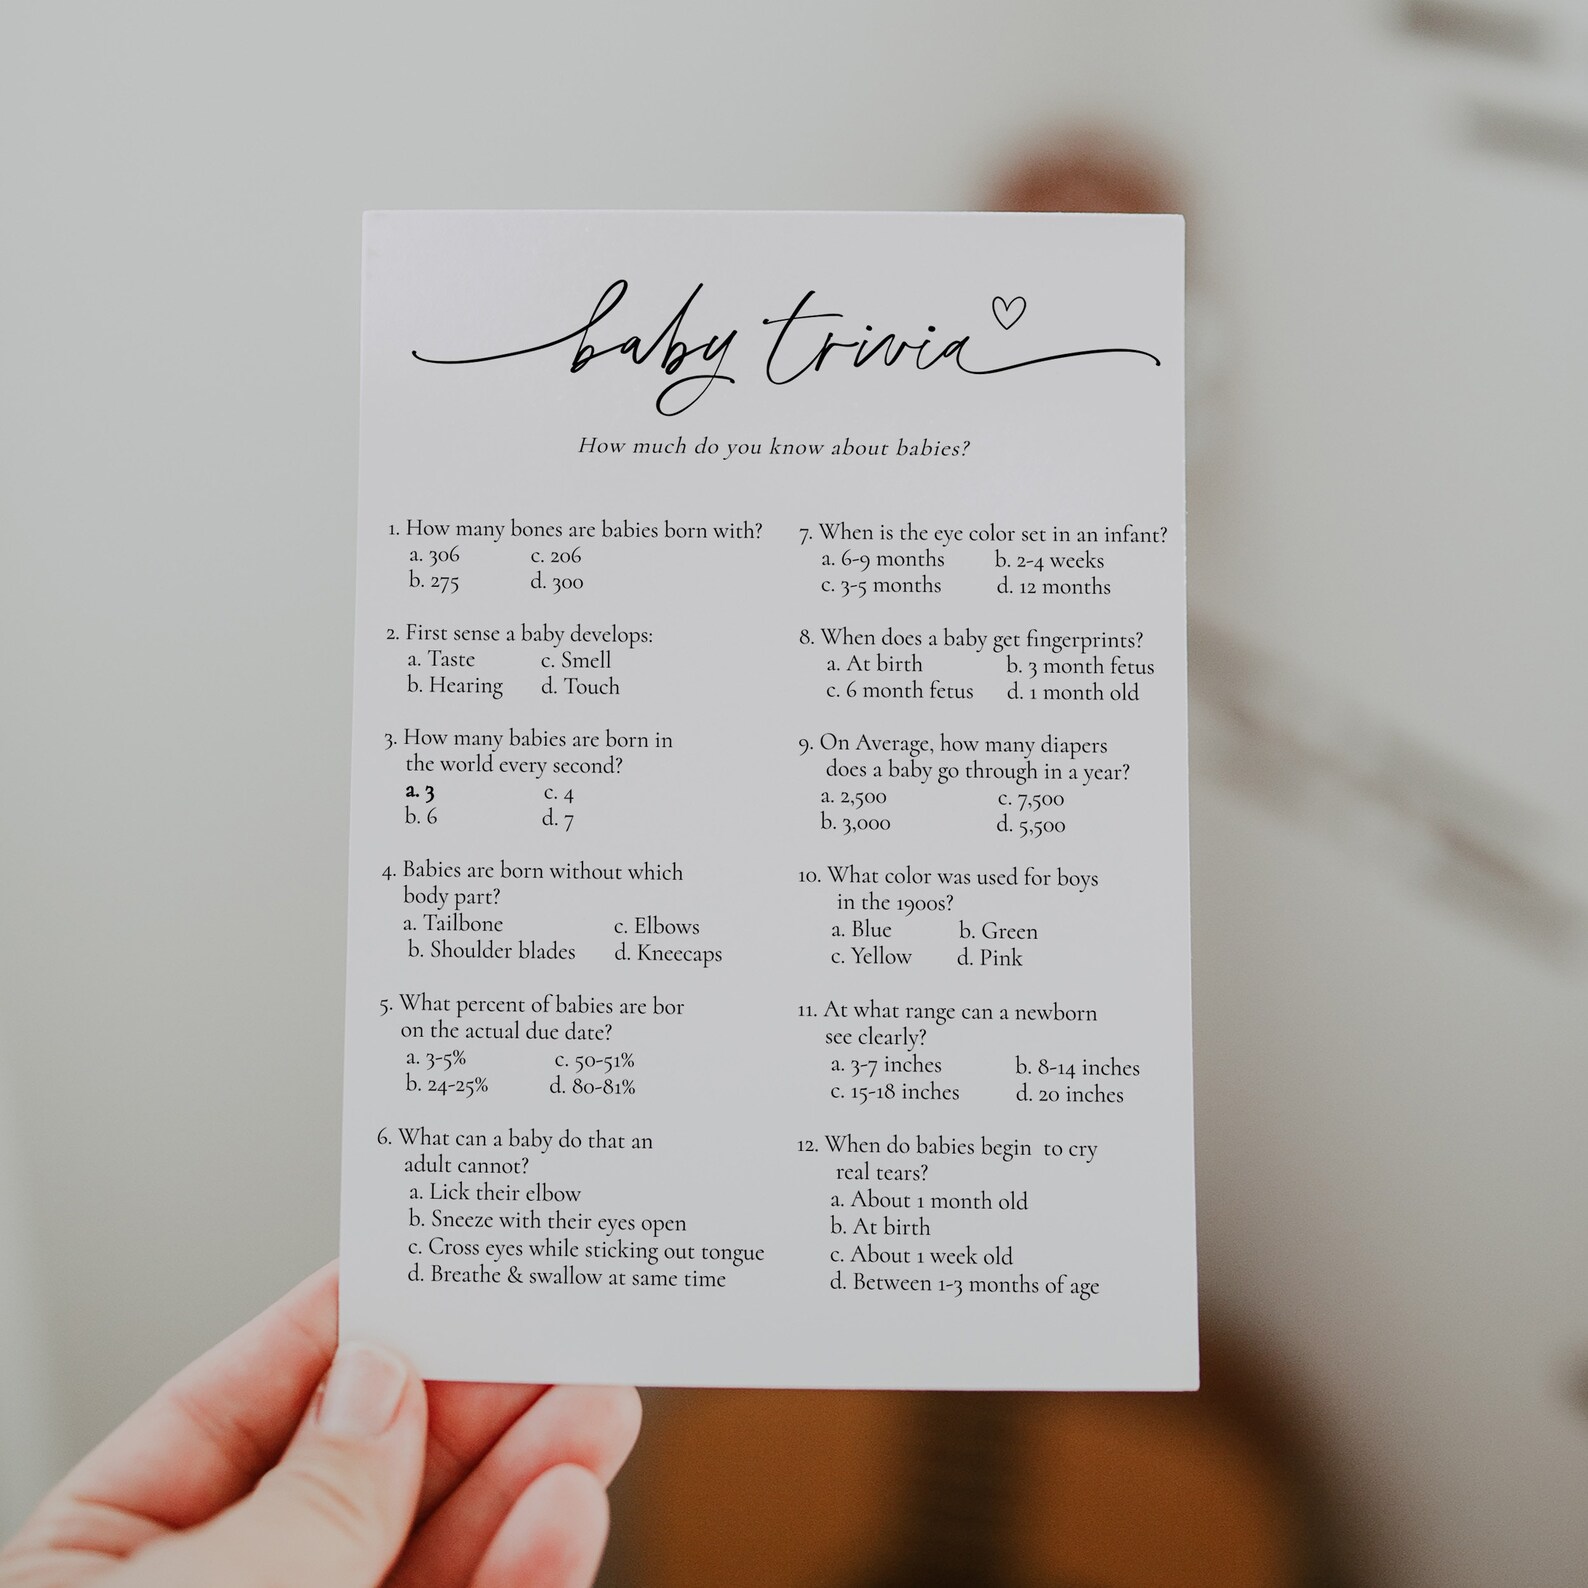 baby trivia
How much do you know about babies?
1. How many bones are babies born with?
a. 306 c. 206
b. 275 d. 300
2. First sense a baby develops:
a. Taste c. Smell
b. Hearing d. Touch
3. How many babies are born in
the world every second?
a. 3 c. 4
b. 6 d. 7
4. Babies are born without which
body part?
a. Tailbone c. Elbows
b. Shoulder blades d. Kneecaps
5. What percent of babies are bor
on the actual due date?
a. 3-5% c. 50-51%
b. 24-25% d. 80-81%
6. What can a baby do that an
adult cannot?
a. Lick their elbow
b. Sneeze with their eyes open
c. Cross eyes while sticking out tongue
d. Breathe & swallow at same time
7. When is the eye color set in an infant?
a. 6-9 months b. 2-4 weeks
c. 3-5 months d. 12 months
8. When does a baby get fingerprints?
a. At birth b. 3 month fetus
c. 6 month fetus d. 1 month old
9. On Average, how many diapers
does a baby go through in a year?
a. 2,500 c. 7,500
b. 3,000 d. 5,500
10. What color was used for boys
in the 1900s?
a. Blue b. Green
c. Yellow d. Pink
11. At what range can a newborn
see clearly?
a. 3-7 inches b. 8-14 inches
c. 15-18 inches d. 20 inches
12. When do babies begin to cry
real tears?
a. About 1 month old
b. At birth
c. About 1 week old
d. Between 1-3 months of age